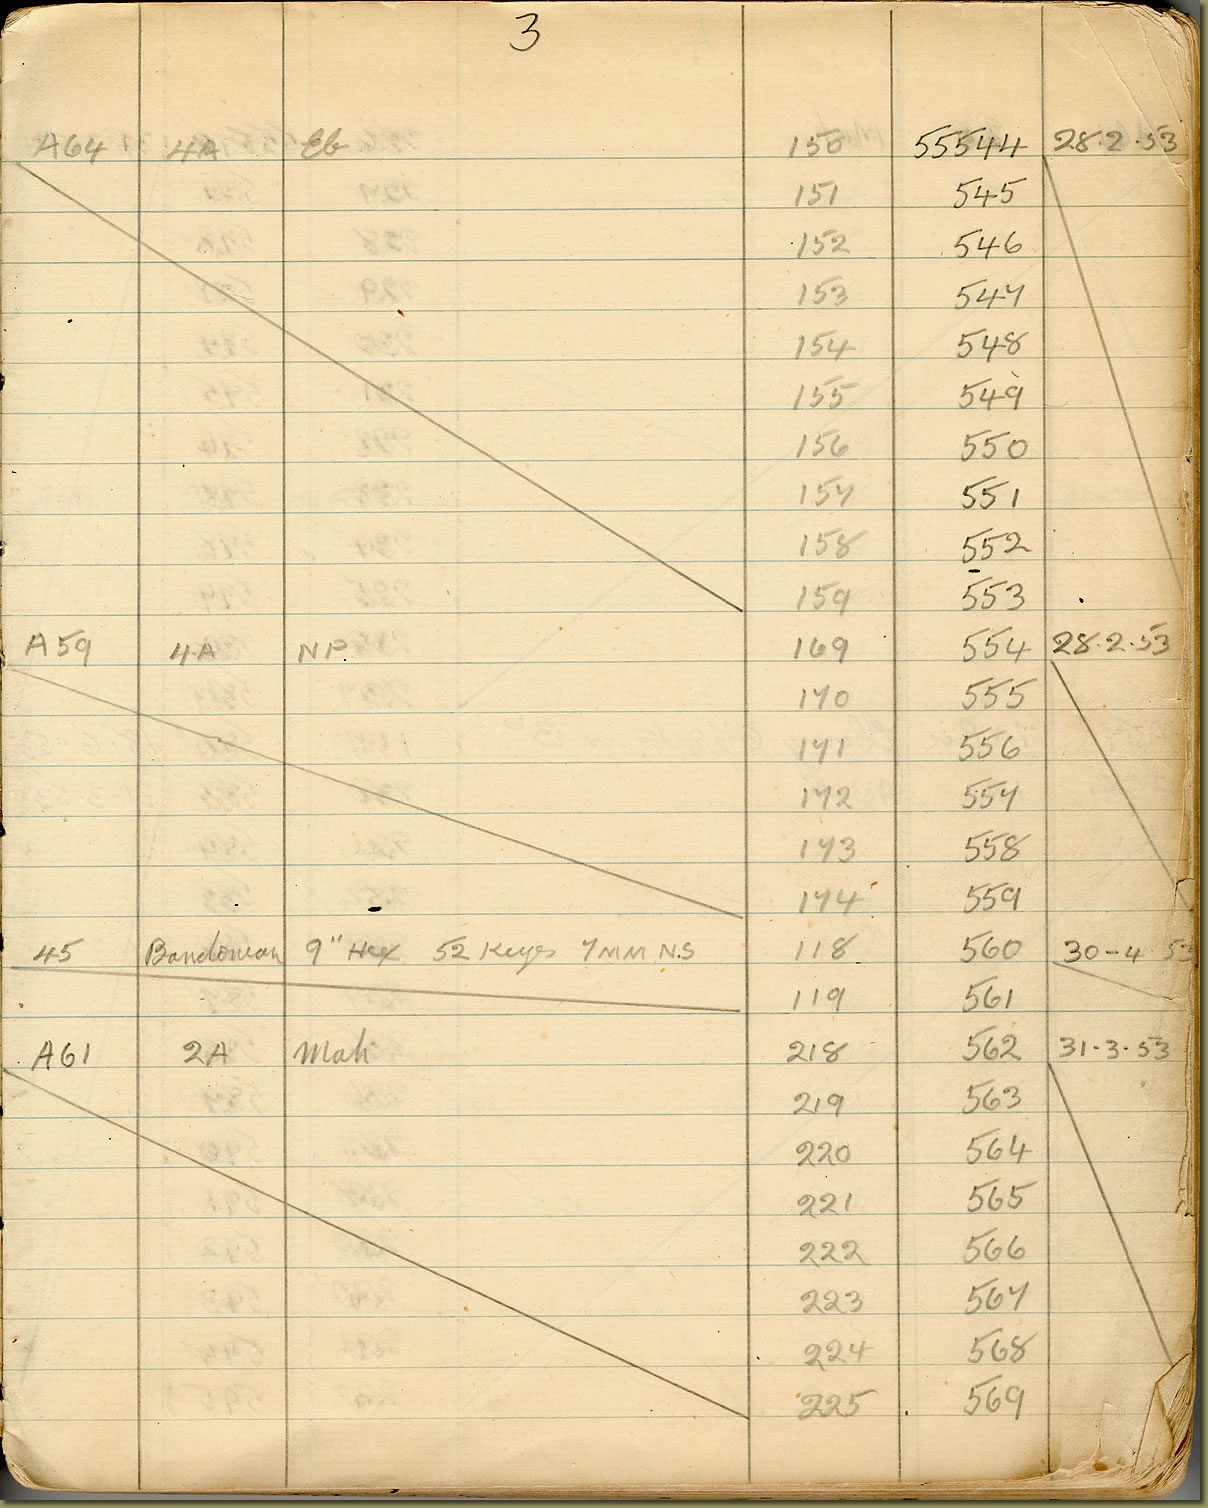 3
A64 4A Eb 150 55544 28.2.53
151 545
152 546
153 547
154 548
155 549
156 550
157 551
158 552
159 553
A59 4A NP. 169 554 28.2.53
170 555
171 556
172 557
173 558
174 559
45 Bandonean 9" Hex 52 Keys 7MM N.S 118 560 30-4 53
119 561
A61 2A Mah 218 562 31-3-53
219 563
220 564
221 565
222 566
223 567
224 568
225 569